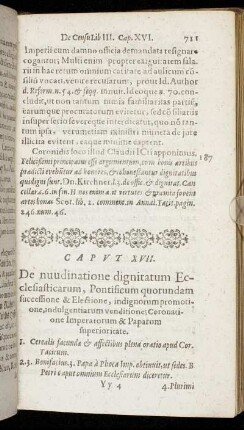 De Censu Lib III. Cap. XVI. 711
Imperii cum damno officia demandata resignare
cogantur; Multi enim propter exiguitatem sala-
rii in hac rerum omnium caritate ad aulicum
silio vocati, venire recusarunt, prout Id. Author
d. Reform. n. 54. & seqq. innuit. Id eoque a. 70. con-
cludit, ut non tantum nuncia familiaritas partis,
earumque procuratorum evitetur, sed & filiastris
insuper serio severeque interdicatur, quo non tan-
tum ipsa, verum etiam ministri muneta de jure
illicita evitent, neque accipiant.
Coronidis loco illud Claudii Criapponinus, 187
Felicissimi principatus esse argumentum, cum bonis artibus
præditi evehuntur ad honores, eos honestanturque dignitatibus
quò digni sunt. Dn. Kirchner. l. 3. de offic. & dignitat. Can-
cellar. c. 6. in fin. Namque
artes bonæ Scot. lib. 2. comment. in Annal. Tacit. pagin.
246. num. 46.
CAPUT XVII.
De nundinatione dignitatum Ec-
clesiasticarum, Pontificum quorundam
successione & Electione, indignorum promoti-
one, indulgentiarum venditione; Coronati-
one Imperatorum & Paparum
superioritate.
1. Cerealis facundia & affectibus plena oratio apud Cor-
Tacitum.
2. 3. Bonifacius 3. Papa à Phoca Imp. obtinuit, ut sedes B.
Petri caput omnium Ecclesiarum diceretur.
Yy 4 4. Plurimi